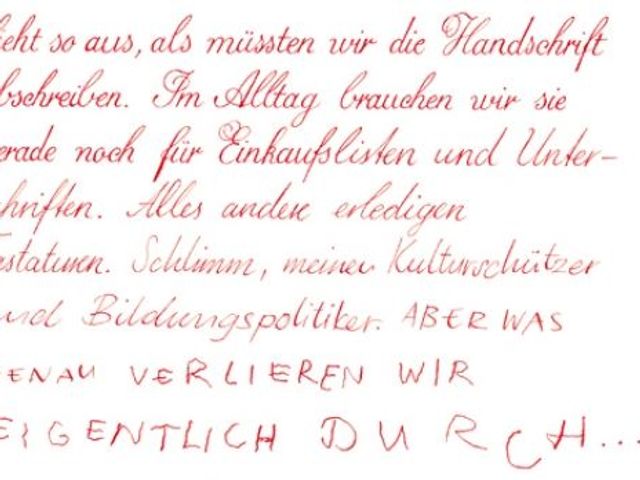 ieht so aus, als müssten wir die Handschrift
bschreiben. Im Alltag brauchen wir sie
erade noch für Einkaufslisten und Unter-
hriften. Alles andere erledigen
astaturen. Schlimm, meinen Kulturschützer
und Bildungspolitiker. ABER WAS
ENAU VERLIEREN WIR
EIGENTLICH DURCH...